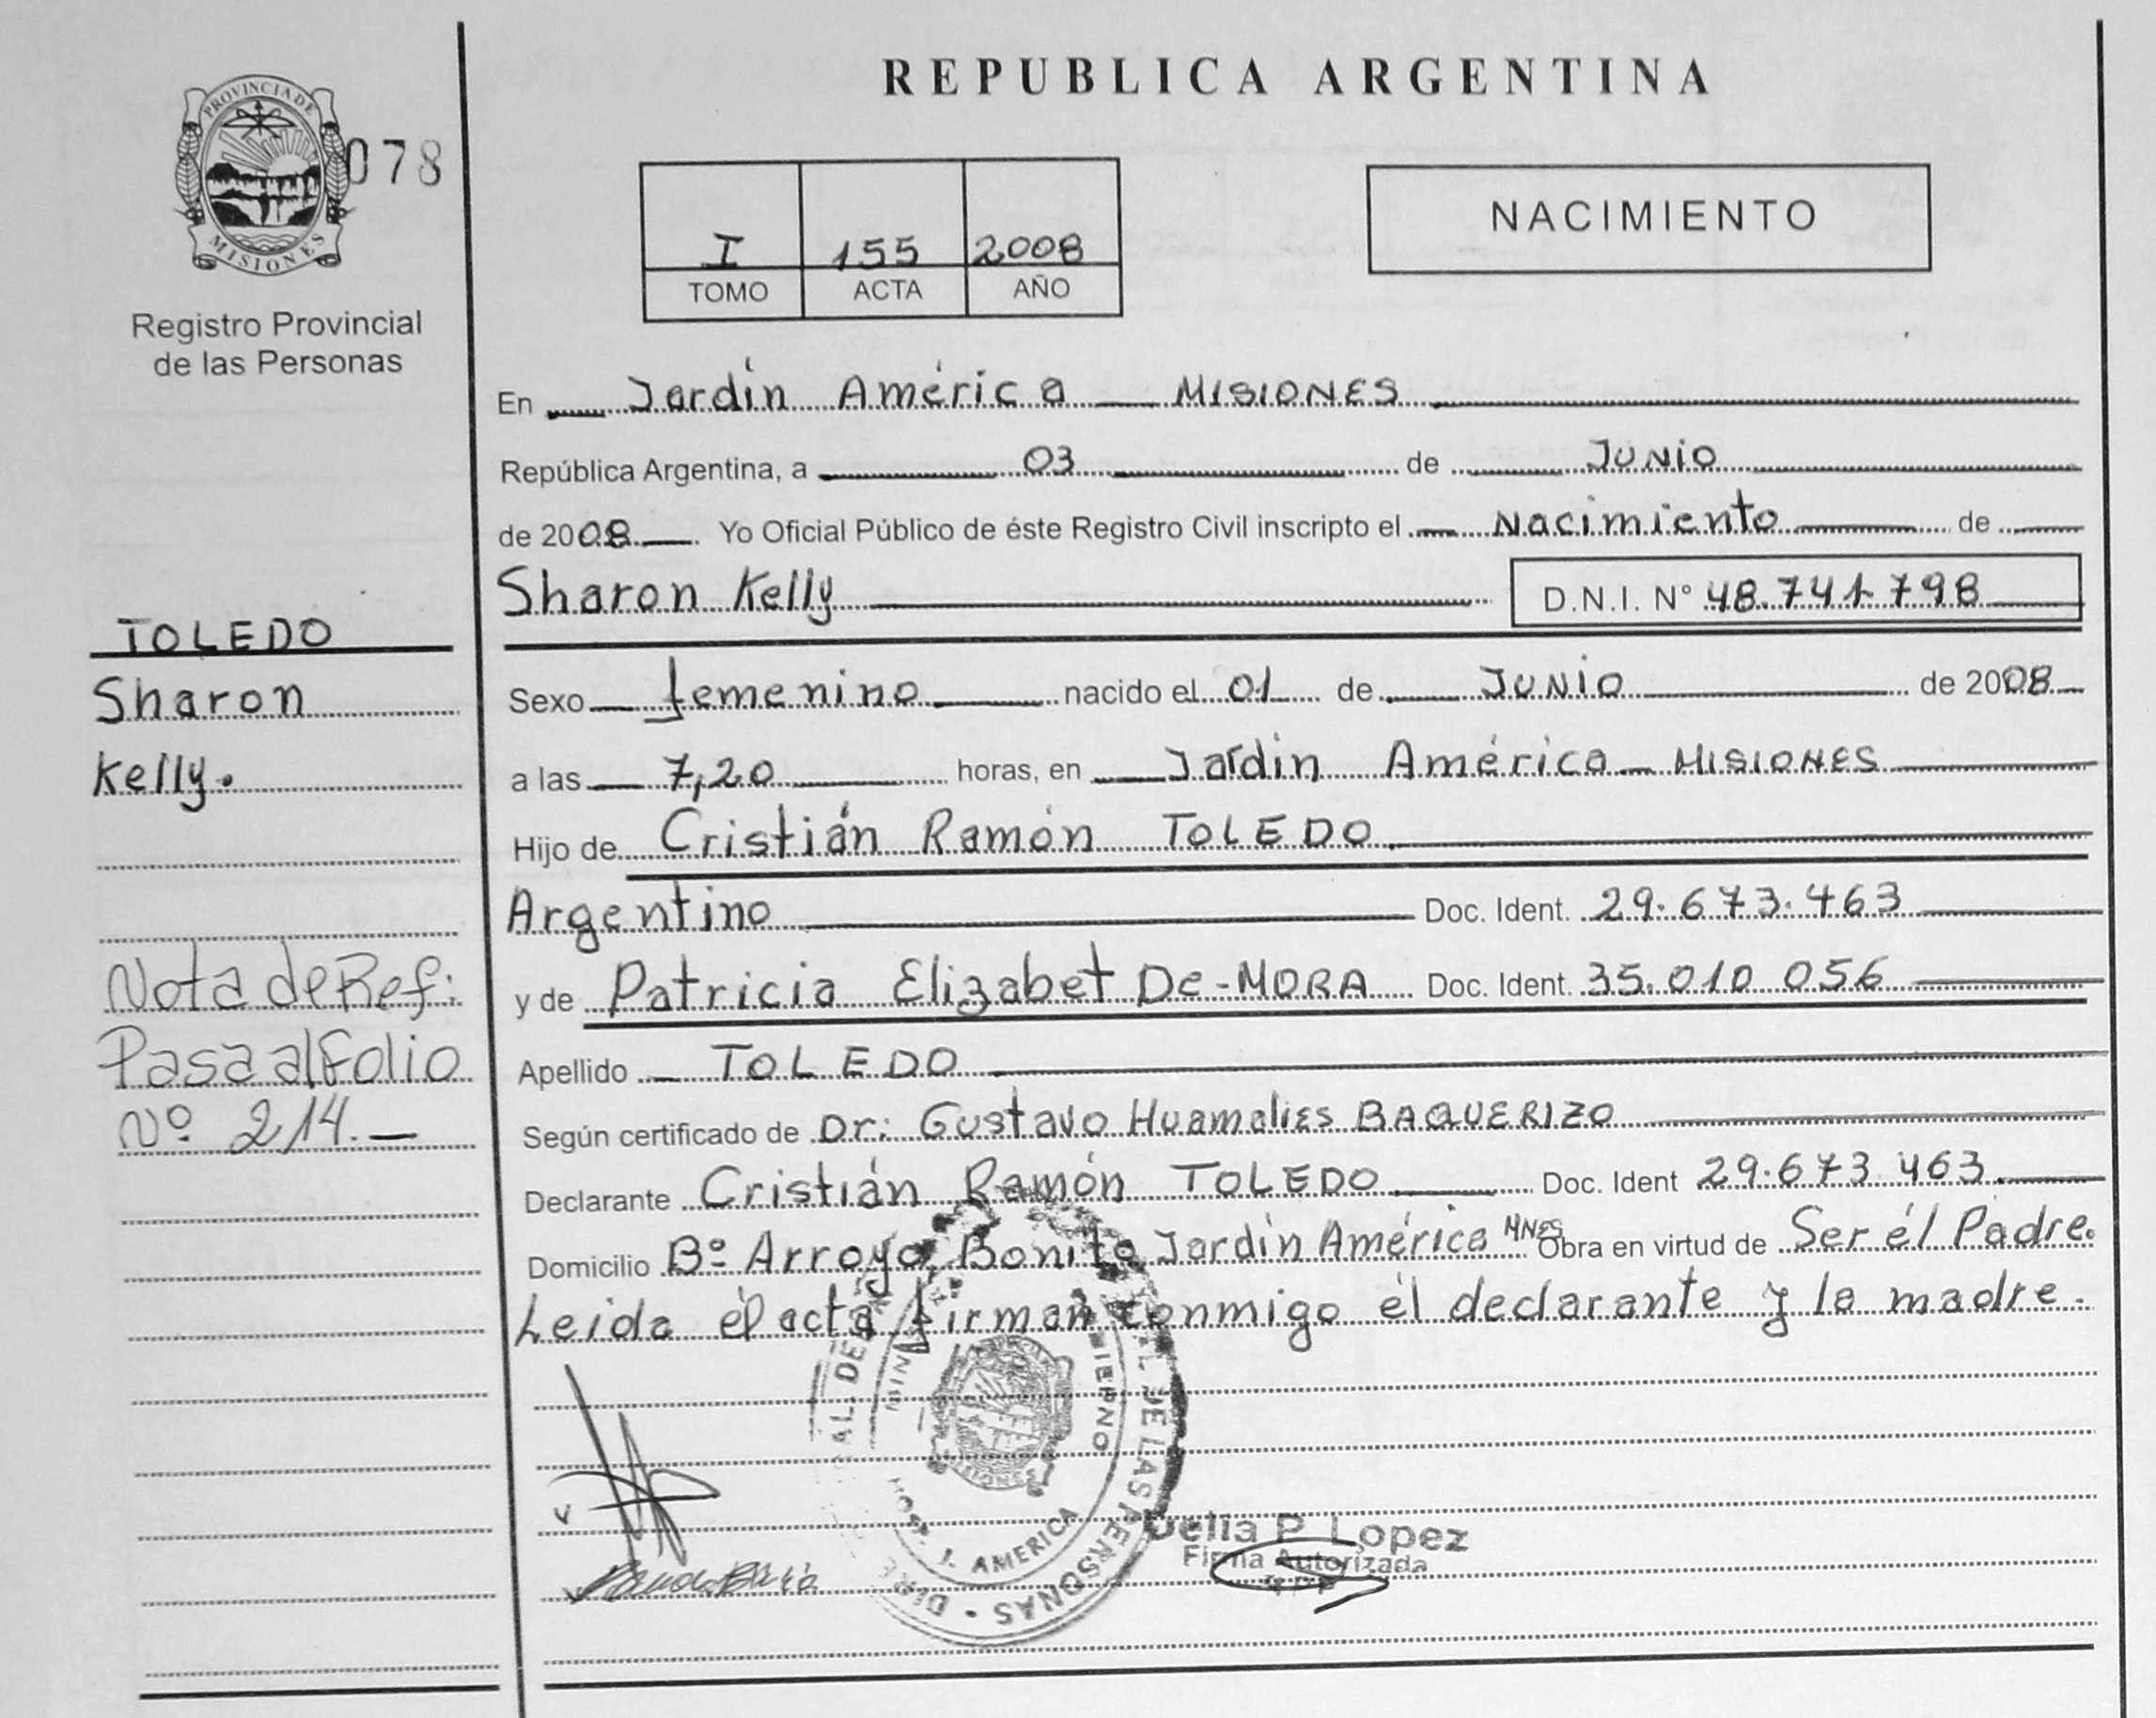 REPUBLICA ARGENTINA
PROVINCIA DE
MISIONES
078
Registro Provincial
de las Personas
I 155 2008
TOMO ACTA AÑO
NACIMIENTO
En Jardín América MISIONES
República Argentina, a 03 de JUNIO
de 2008 Yo Oficial Público de éste Registro Civil inscripto el Nacimiento de
Sharon Kelly D.N.I. N° 48.741.798
Sexo femenino nacido el 01 de JUNIO de 2008
a las 7,20 horas, en Jardín América MISIONES
Hijo de Cristián Ramón TOLEDO
Argentino Doc. Ident. 29.673.463
y de Patricia Elizabet De-MORA Doc. Ident. 35.010 056
Apellido TOLEDO
Según certificado de Dr: Gustavo Huamalies BAQUERIZO
Declarante Cristián Ramón TOLEDO Doc. Ident 29.673 463
Domicilio Bº Arroyo Bonito Jardín América MNES Obra en virtud de Ser él Padre.
Leida él acta firman conmigo él declarante y la madre.
TOLEDO
Sharon
Kelly.
Nota de Ref:
Pasa al Folio
Nº 214.—
DE LAS PERSONAS
J. AMERICA
Delia P. Lopez
Firma Autorizada